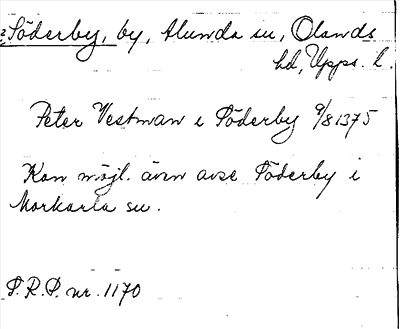 Söderby, by, Alunda sn, Olands
hd, Upps. l.
Peter Vestman i Söderby 9/8 1375
Kan möjl. även avse Söderby i
Morkarla sn.
S.R.P. nr. 1170